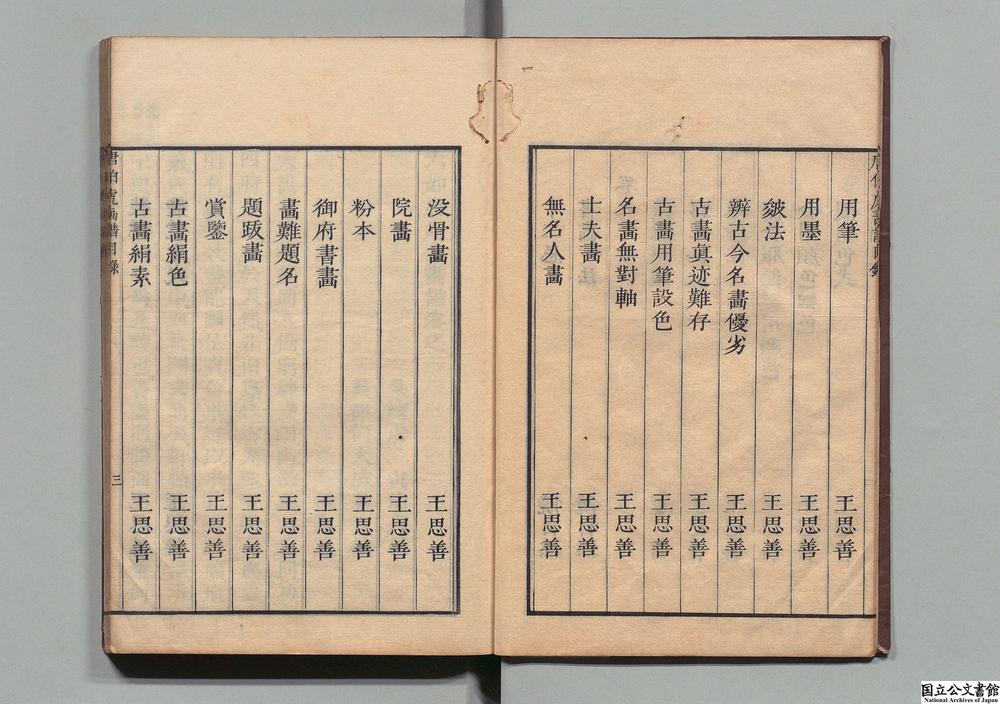 用筆 王思善
用墨 王思善
皴法 王思善
辨古今名畫優劣 王思善
古畫真迹難存 王思善
古畫用筆設色 王思善
名畫無對軸 王思善
士夫畫 王思善
無名人畫 王思善
没骨畫 王思善
院畫 王思善
粉本 王思善
御府書畫 王思善
畫難題名 王思善
題跋畫 王思善
賞鑒 王思善
古畫絹色 王思善
古畫絹素 王思善
唐伯虎畫譜目錄
三
国立公文書館
National Archives of Japan